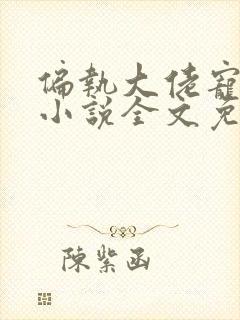 偏執大佬寵
小說全文免
陳紫函